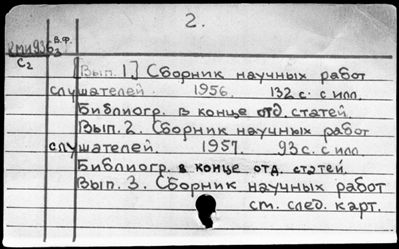 2.
В.Ф.
С2
[Вып. 1] Сборник научных работ
слушателей. 1956. 132 с. с илл.
Библиогр. в конце отд. статей.
Вып. 2. Сборник научных работ
слушателей. 1957. 93 с. с илл.
Библиогр. в конце отд. статей.
Вып. 3. Сборник научных работ
см. след. карт.